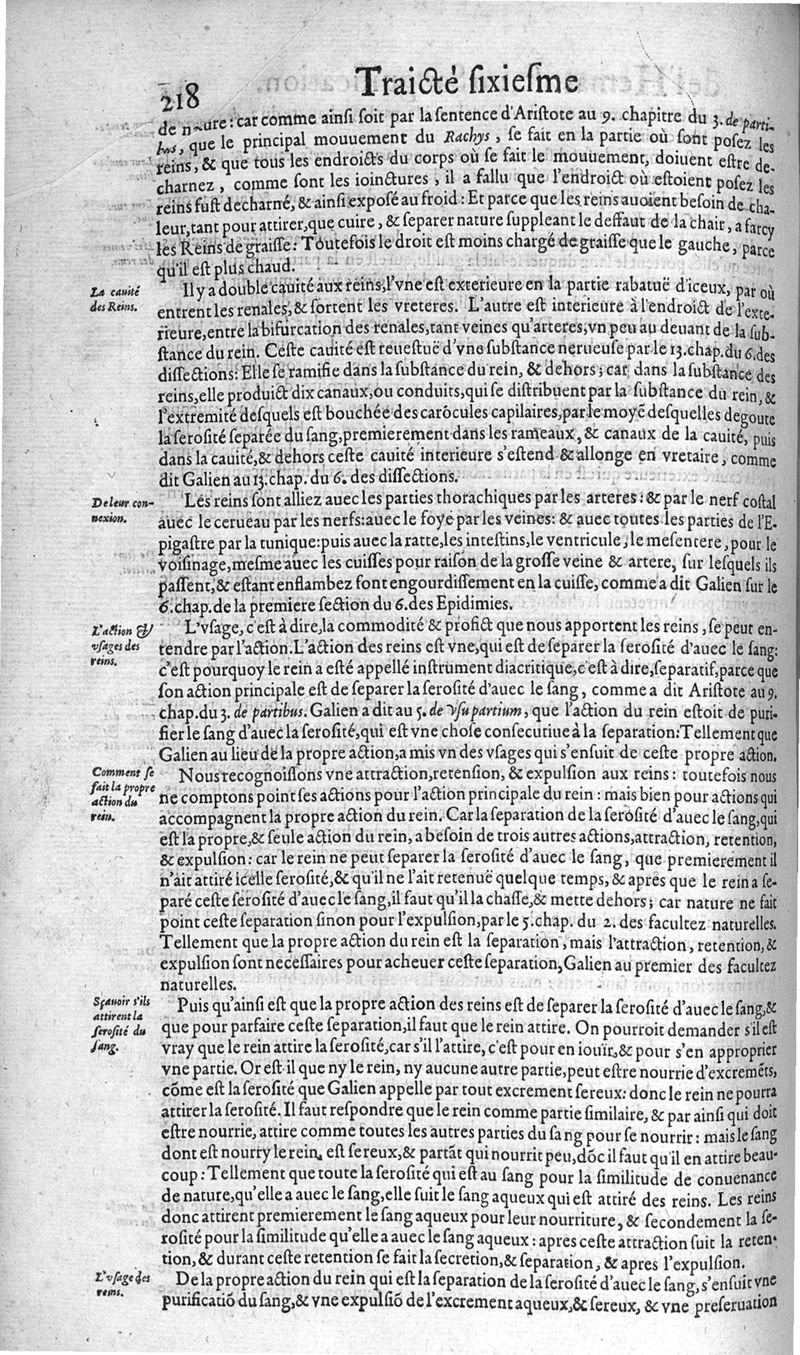 218
Traicté sixiesme
de nature: car comme ainsi soit par la sentence d'Aristote au 9. chapitre du 3. de parti-
bus, que le principal mouuement du Rachys, se fait en la partie où sont posez les
reins, & que tous les endroicts du corps où se fait le mouuement, doiuent estre de-
charnez, comme sont les ioinctures, il a fallu que l'endroict où estoient posez les
reins fust decharné, & ainsi exposé au froid: Et parce que les reins auoient besoin de cha-
leur, tant pour attirer, que cuire, & separer nature suppleant le deffaut de la chair, a farcy
les Reins de graisse: Toutefois le droit est moins chargé de graisse que le gauche, parce
qu'il est plus chaud.
La cauité
des Reins.
Il y a double cauité aux reins, l'vne est exterieure en la partie rabatuë d'iceux, par où
entrent les renales, & sortent les vreteres. L'autre est interieure à l'endroict de l'exte-
rieure, entre la bifurcation des renales, tant veines qu'arteres, vn peu au deuant de la sub-
stance du rein. Ceste cauité est reuestuë d'vne substance nerueuse par le 13. chap. du 6. des
dissections: Elle se ramifie dans la substance du rein, & dehors; car dans la substance des
reins, elle produict dix canaux, ou conduits, qui se distribuent par la substance du rein, &
l'extremité desquels est bouchée des carocules capilaires, par le moyẽ desquelles degoute
la serosité separée du sang, premierement dans les rameaux, & canaux de la cauité, puis
dans la cauité, & dehors ceste cauité interieure s'estend & allonge en vretaire, comme
dit Galien au 13. chap. du 6. des dissections.
De leur con-
nexion.
Les reins sont alliez auec les parties thorachiques par les arteres: & par le nerf costal
auec le cerueau par les nerfs: auec le foye par les veines: & auec toutes les parties de l'E-
pigastre par la tunique: puis auec la ratte, les intestins, le ventricule, le mesentere, pour le
voisinage, mesme auec les cuisses pour raison de la grosse veine & artere, sur lesquels ils
passent, & estant enflambez font engourdissement en la cuisse, comme a dit Galien sur le
6. chap. de la premiere section du 6. des Epidimies.
L'action &
vsages des
reins.
L'vsage, c'est à dire, la commodité & profict que nous apportent les reins, se peut en-
tendre par l'action. L'action des reins est vne, qui est de separer la serosité d'auec le sang:
c'est pourquoy le rein a esté appellé instrument diacritique, c'est à dire, separatif, parce que
son action principale est de separer la serosité d'auec le sang, comme a dit Aristote au 9.
chap. du 3. de partibus. Galien a dit au 5. de vsu partium, que l'action du rein estoit de puri-
fier le sang d'auec la serosité, qui est vne chose consecutiue à la separation: Tellement que
Galien au lieu de la propre action, a mis vn des vsages qui s'ensuit de ceste propre action.
Comment se
fait la propre
action du
rein.
Nous recognoissons vne attraction, retension, & expulsion aux reins: toutefois nous
ne comptons point ses actions pour l'action principale du rein: mais bien pour actions qui
accompagnent la propre action du rein. Car la separation de la serosité d'auec le sang, qui
est la propre, & seule action du rein, a besoin de trois autres actions, attraction, retention,
& expulsion: car le rein ne peut separer la serosité d'auec le sang, que premierement il
n'ait attiré icelle serosité, & qu'il ne l'ait retenuë quelque temps, & apres que le rein a se-
paré ceste serosité d'auec le sang, il faut qu'il la chasse, & mette dehors; car nature ne fait
point ceste separation sinon pour l'expulsion, par le 5. chap. du 2. des facultez naturelles.
Tellement que la propre action du rein est la separation, mais l'attraction, retention, &
expulsion sont necessaires pour acheuer ceste separation, Galien au premier des facultez
naturelles.
Sçauoir s'ils
attirent la
serosité du
sang.
Puis qu'ainsi est que la propre action des reins est de separer la serosité d'auec le sang, &
que pour parfaire ceste separation, il faut que le rein attire. On pourroit demander s'il est
vray que le rein attire la serosité, car s'il l'attire, c'est pour en iouir, & pour s'en approprier
vne partie. Or est il que ny le rein, ny aucune autre partie, peut estre nourrie d'excremẽts,
cõme est la serosité que Galien appelle par tout excrement sereux: donc le rein ne pourra
attirer la serosité. Il faut respondre que le rein comme partie similaire, & par ainsi qui doit
estre nourrie, attire comme toutes les autres parties du sang pour se nourrir: mais le sang
dont est nourry le rein, est sereux, & partãt qui nourrit peu, dõc il faut qu'il en attire beau-
coup: Tellement que toute la serosité qui est au sang pour la similitude de conuenance
de nature, qu'elle a auec le sang, elle suit le sang aqueux qui est attiré des reins. Les reins
donc attirent premierement le sang aqueux pour leur nourriture, & secondement la se-
rosité pour la similitude qu'elle a auec le sang aqueux: apres ceste attraction suit la reten-
tion, & durant ceste retention se fait la secretion, & separation, & apres l'expulsion.
L'vsage des
reins.
De la propre action du rein qui est la separation de la serosité d'auec le sang, s'ensuit vne
purificatiõ du sang, & vne expulsiõ de l'excrement aqueux, & sereux, & vne preseruation